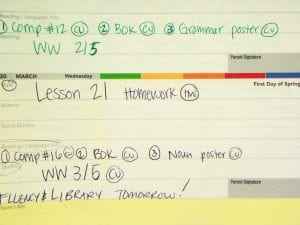 Reading / Language Arts
① Comp #12 CW ② BOK CW ③ Grammar poster CW
Spelling
WW 2/5
Parent Signature
20 MARCH Wednesday First Day of Spring
Math Lesson 21 Homework HW
Science
Social Studies
Reading / Language Arts
① Comp #16 CW ② BOK CW ③ Noun poster CW
Spelling
WW 3/5 CW
Parent Signature
FLUENCY & LIBRARY TOMORROW!